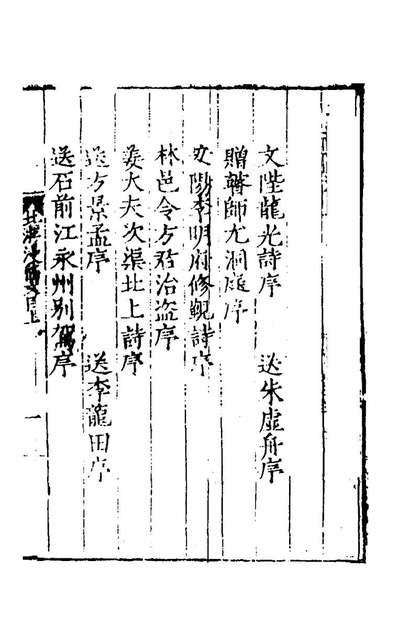 文陛龍光詩序　送朱虛舟序
贈瞽師尤洞庭序
李明府修覲詩序
林邑令方君治盜序
姜大夫次渠北上詩序
送方景孟序　送李龍田序
送石前江永州別駕序